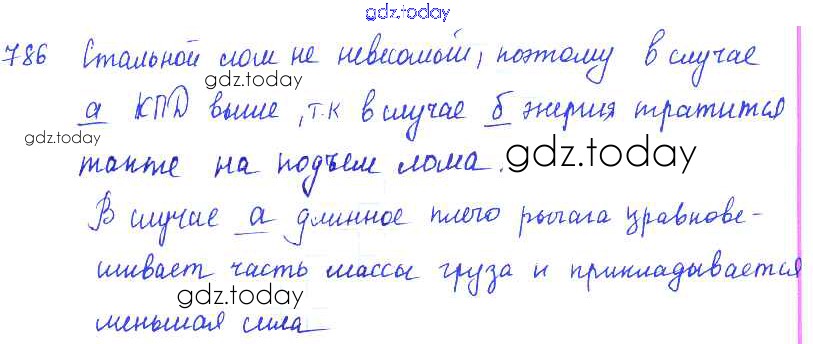 gdz.today
786 Стальной лом не невесомый, поэтому в случае
gdz.today
а КПД выше, т.к в случае б энергия тратится
gdz.today
также на подъем лома.
gdz.today
В случае а длинное плечо рычага уравнове-
шивает часть массы груза и прикладывается
gdz.today
меньшая сила